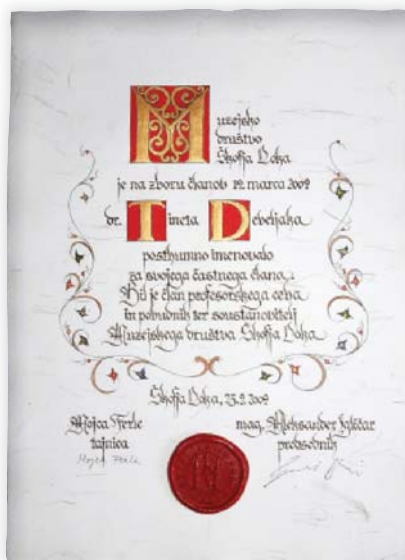 Muzejsko
društvo
Škofja Loka
je na zboru članov 12. marca 2009
dr. Tineta Debeljaka
posthumno imenovalo
za svojega častnega člana.
Bil je član profesorskega ceha
in pobudnik ter soustanovitelj
Muzejskega društva Škofja Loka
Škofja Loka, 25.2.2009
Mojca Ferle
mag. Aleksander Igličar
tajnica
predsednik
Mojca Ferle